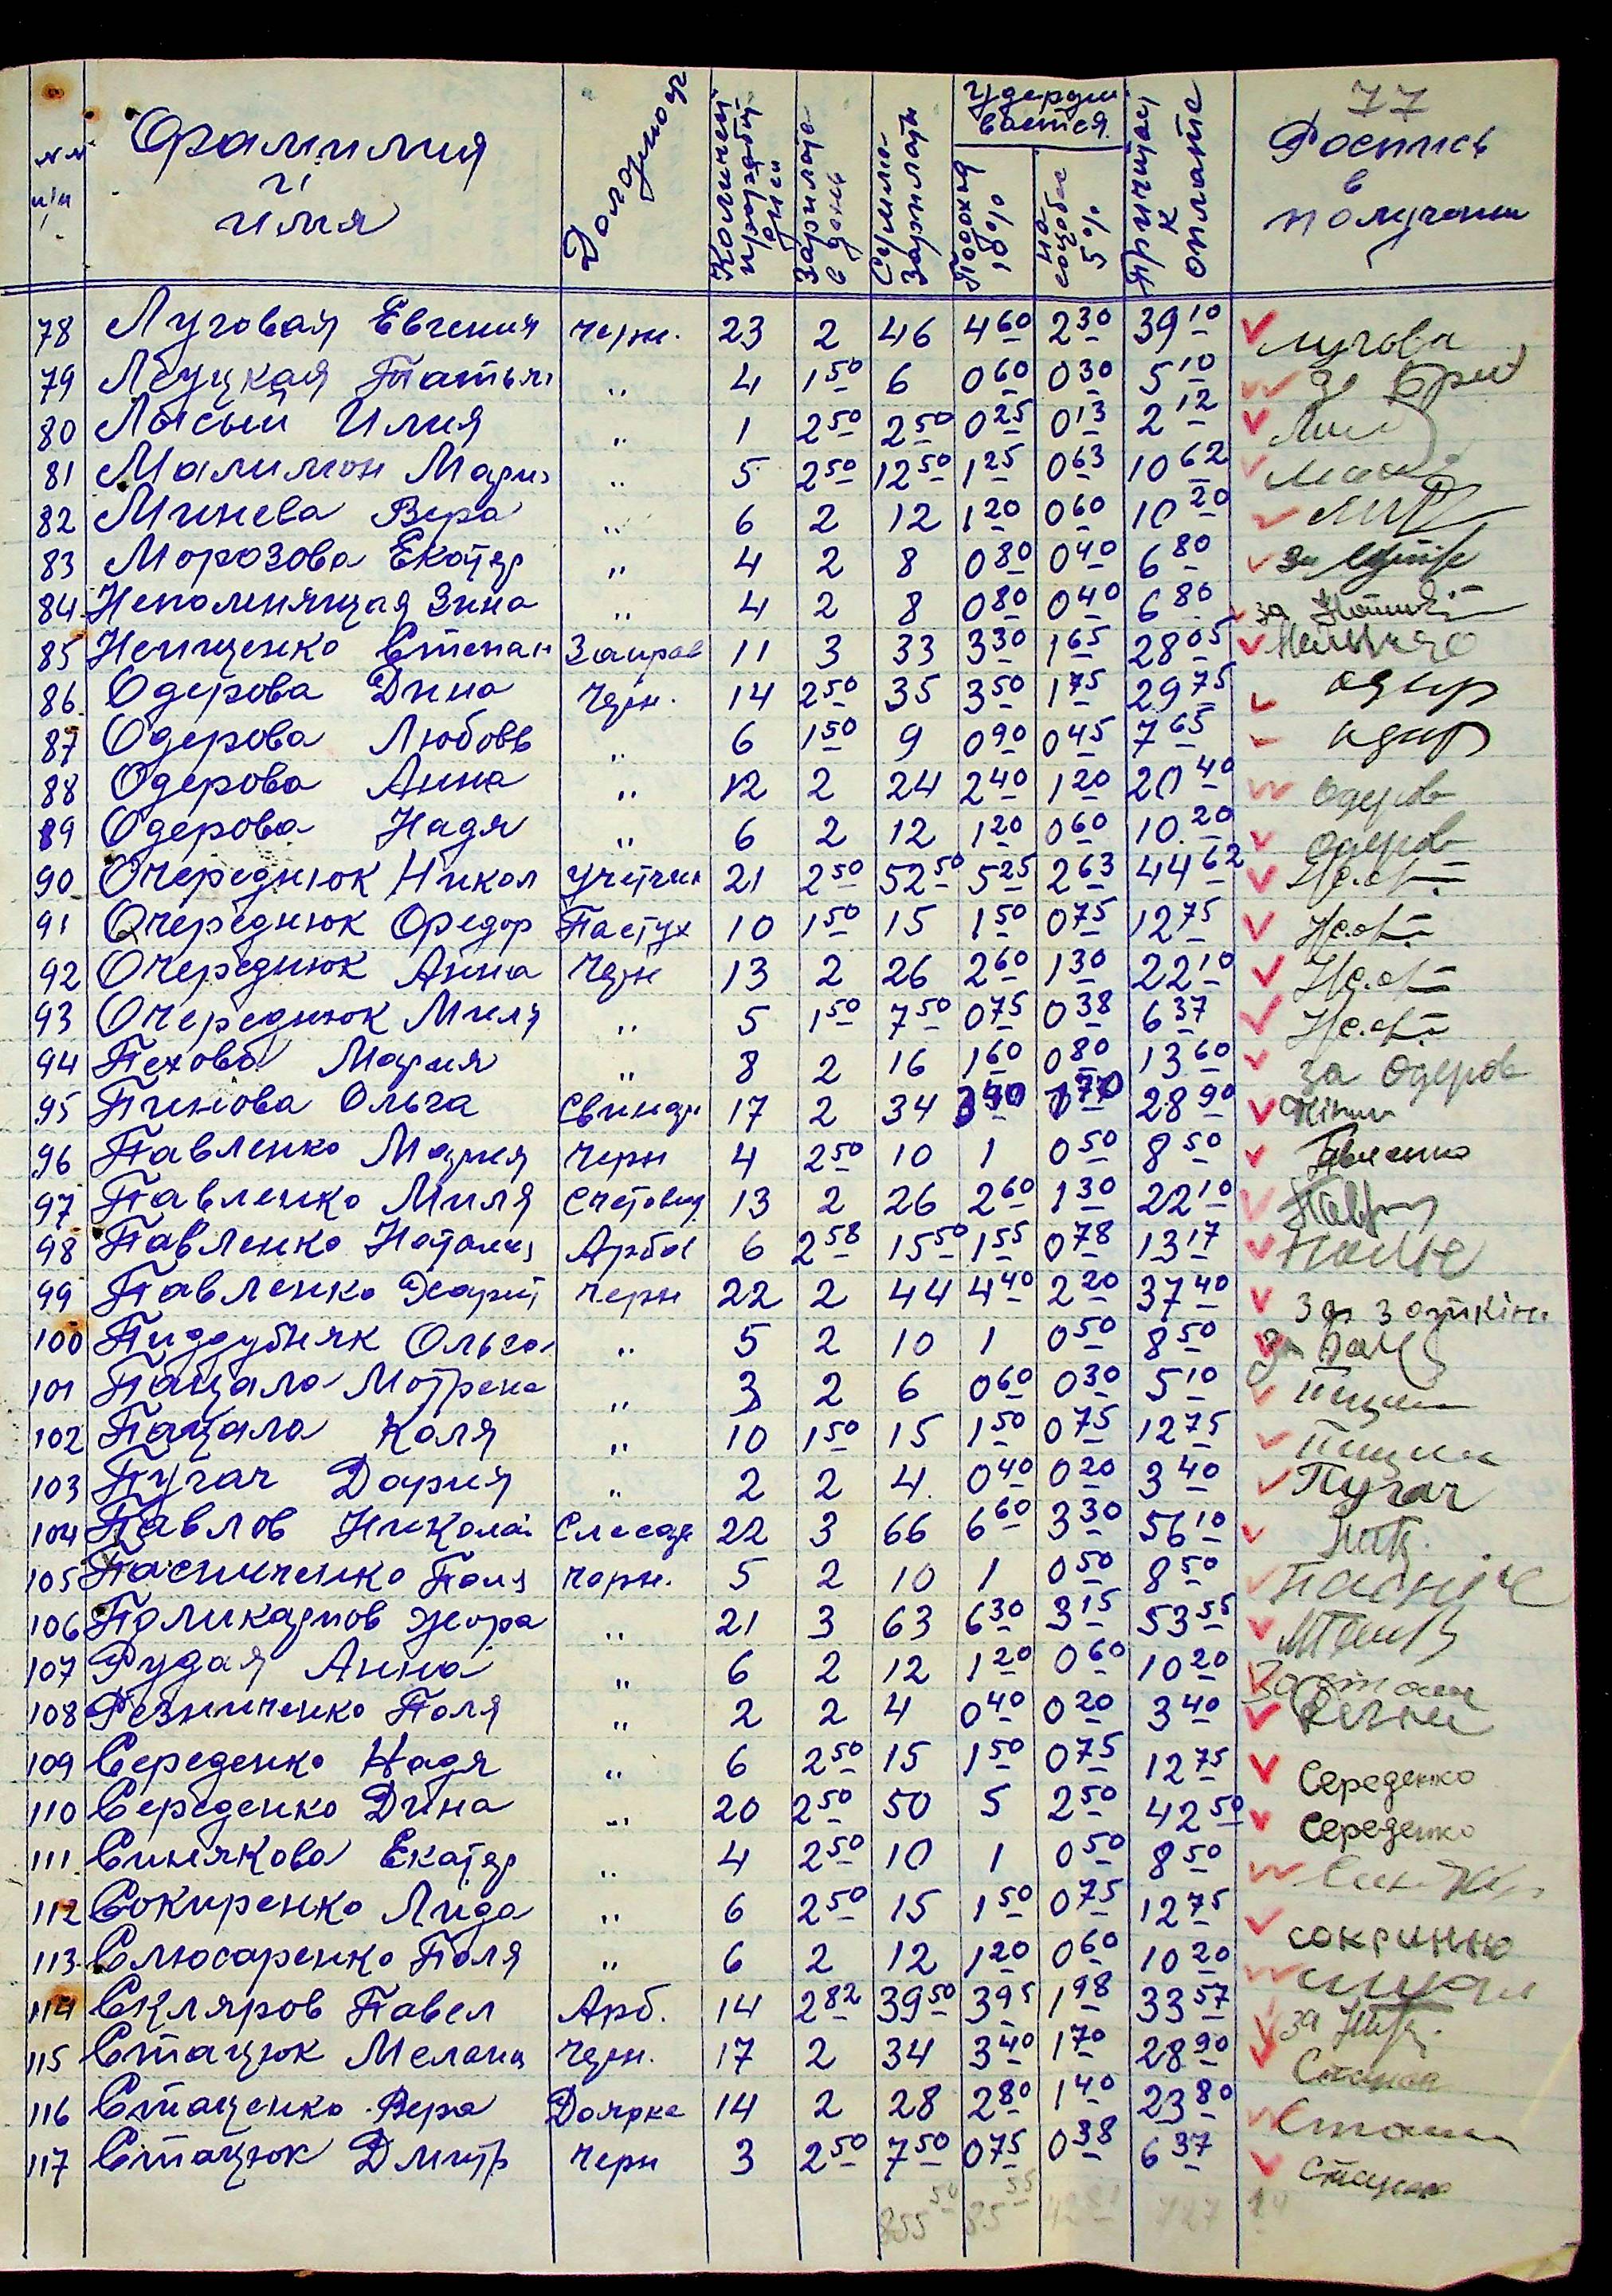 77
№№ п/п Фамилия и имя Должност Количест. прораобт дней Зарплата в день Сумма зарплаты Удержи вается Подоход 10% на соцобес 5% Причитает к оплате Роспись в получении
78 Луговая Евгения черн. 23 2 46 4 60 2 30 39 10 лугова
79 Леуцкая Татья „ 4 1 50 6 0 60 0 30 5 10 за
80 Лысый Илия „ 1 2 50 2 50 0 25 0 13 2 12
81 Малимон Мария „ 5 2 50 12 50 1 25 0 63 10 62
82 Минева Вера „ 6 2 12 1 20 0 60 10 20
83 Морозова Екатер „ 4 2 8 0 80 0 40 6 80 за
84 Непомнящая Зина „ 4 2 8 0 80 0 40 6 80 за
85 Непщенко Степан Заправ 11 3 33 3 30 1 65 28 05
86 Одерова Дина Черн. 14 2 50 35 3 50 1 75 29 75 одир
87 Одерова Любовь „ 6 1 50 9 0 90 0 45 7 65 одир
88 Одерова Анна „ 12 2 24 2 40 1 20 20 40 Одеров
89 Одерова Надя „ 6 2 12 1 20 0 60 10 20 Одеров
90 Очереднюк Никол Учетчик 21 2 50 52 50 5 25 2 63 44 62
91 Очереднюк Федор Пастух 10 1 50 15 1 50 0 75 12 75
92 Очереднюк Анна Черн 13 2 26 2 60 1 30 22 10
93 Очереднюк Миля „ 5 1 50 7 50 0 75 0 38 6 37
94 Пехова Мария „ 8 2 16 1 60 0 80 13 60 за Одеров
95 Пинова Ольга Свинар 17 2 34 3 40 1 70 28 90
96 Павленко Мария Черн 4 2 50 10 1 0 50 8 50 Павленко
97 Павленко Миля Счетовод 13 2 26 2 60 1 30 22 10
98 Павленко Наталия Арба 6 2 58 15 50 1 55 0 78 13 17
99 Павленко Харит Черн 22 2 44 4 40 2 20 37 40 За
100 Пиддубняк Ольга „ 5 2 10 1 0 50 8 50 За
101 Пацала Мотрена „ 3 2 6 0 60 0 30 5 10
102 Пацала Коля „ 10 1 50 15 1 50 0 75 12 75
103 Пугач Дария „ 2 2 4 0 40 0 20 3 40 Пугач
104 Павлов Николай Слесарь 22 3 66 6 60 3 30 56 10
105 Пасниченко Поля черн. 5 2 10 1 0 50 8 50 Пасниче
106 Поликарпов Жора „ 21 3 63 6 30 3 15 53 55
107 Рудая Анна „ 6 2 12 1 20 0 60 10 20 За
108 Резниченко Поля „ 2 2 4 0 40 0 20 3 40
109 Середенко Надя „ 6 2 50 15 1 50 0 75 12 75 Середенко
110 Середенко Дина „ 20 2 50 50 5 2 50 42 50 Середенко
111 Синякова Екатер „ 4 2 50 10 1 0 50 8 50
112 Сокиренко Лида „ 6 2 50 15 1 50 0 75 12 75
113 Слюсаренко Поля „ 6 2 12 1 20 0 60 10 20
114 Скляров Павел Арб. 14 2 82 39 50 3 95 1 98 33 57 за
115 Стацюк Мелания Черн. 17 2 34 3 40 1 70 28 90
116 Стаценко Вера Доярка 14 2 28 2 80 1 40 23 80
117 Стацюк Дмитр Черн 3 2 50 7 50 0 75 0 38 6 37 Стацюк
855 50 85 55